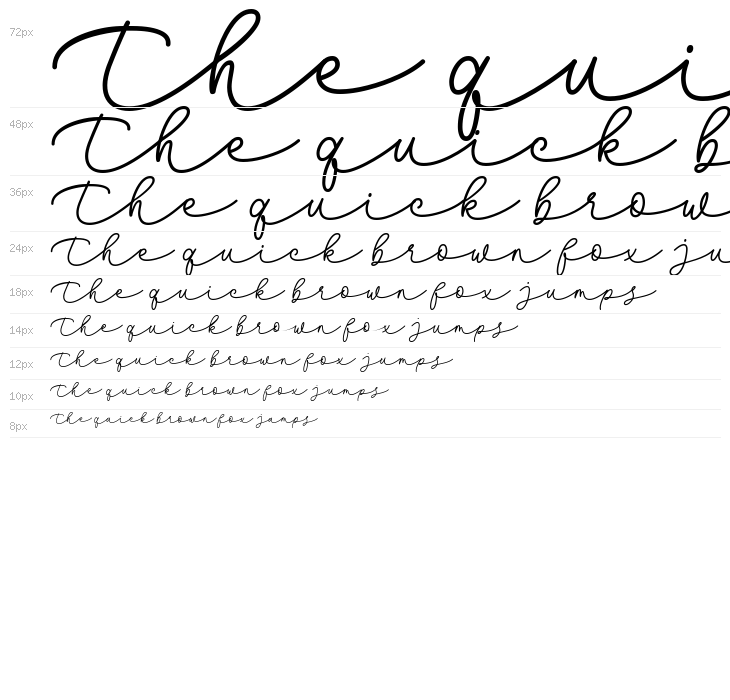 72px The qui
48px The quick b
36px The quick brow
24px The quick brown fox ju
18px The quick brown fox jumps
14px The quick brown fox jumps
12px The quick brown fox jumps
10px The quick brown fox jumps
8px The quick brown fox jumps